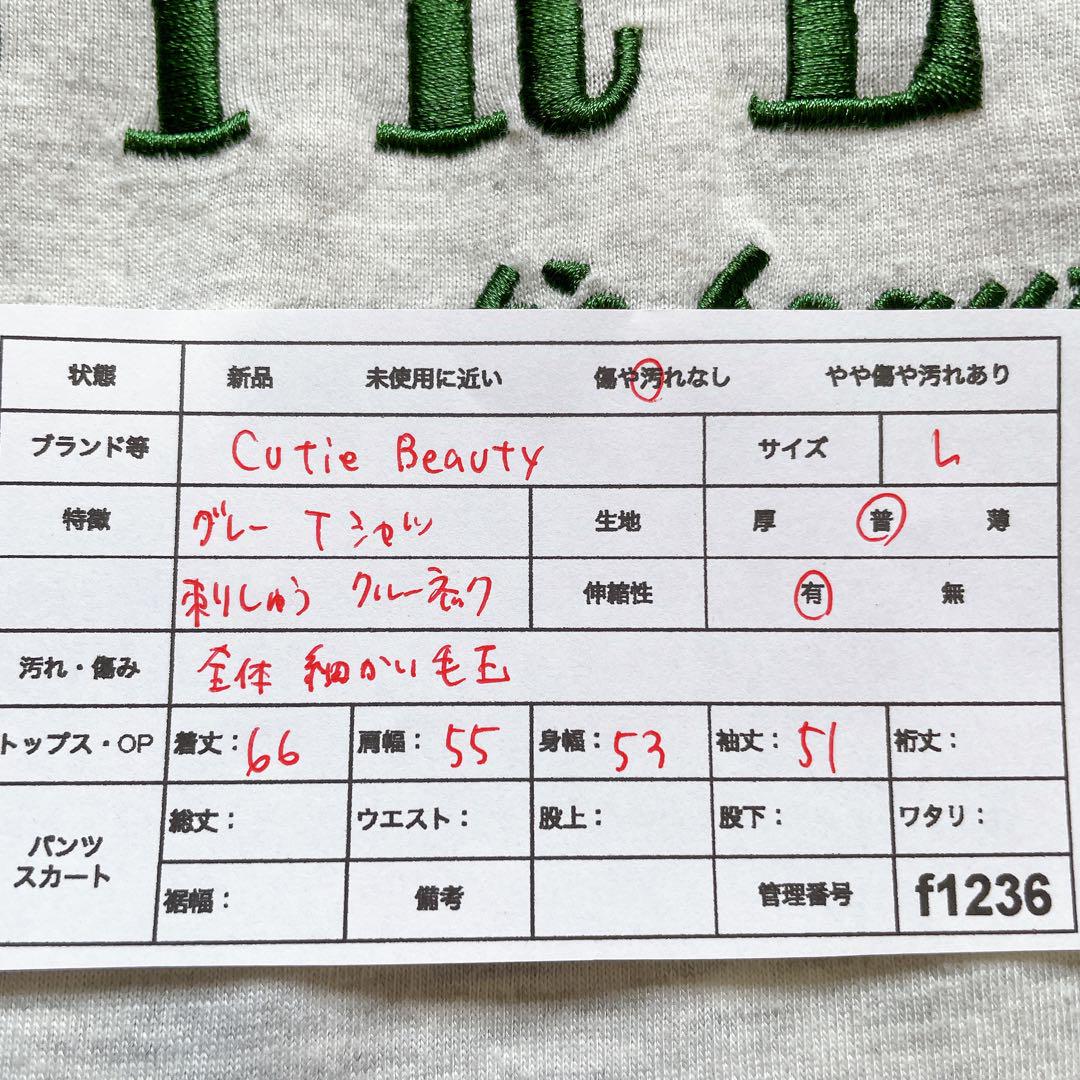 状態 新品 未使用に近い 傷や汚れなし やや傷や汚れあり
ブランド等 Cutie Beauty サイズ L
特徴 グレー Tシャツ 生地 厚 普 薄
刺しゅう クルーネック 伸縮性 有 無
汚れ・傷み 全体 細かい毛玉
トップス・OP 着丈：66 肩幅：55 身幅：53 袖丈：51 裄丈：
パンツ スカート 総丈： ウエスト： 股上： 股下： ワタリ：
裾幅： 備考 管理番号 f1236